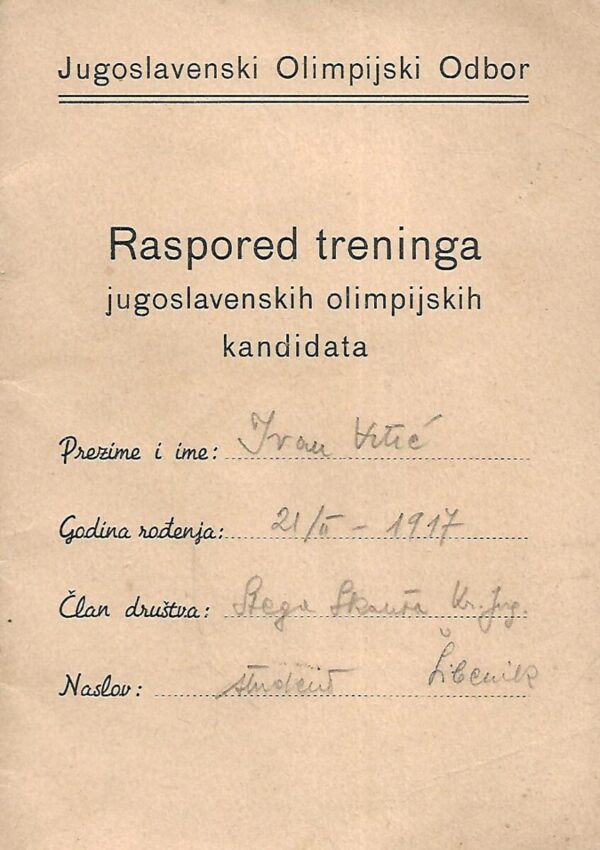 Jugoslavenski Olimpijski Odbor
Raspored treninga
jugoslavenskih olimpijskih
kandidata
Prezime i ime: Ivan
Godina rođenja: 21/II - 1917
Član društva: Stega Skauta Kr. Jug.
Naslov: student Šibenik